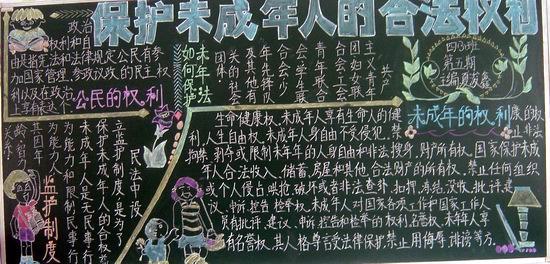 保护未成年人的合法权利
政治权利和自
由是指宪法和法律规定公民有参
加国家管理、参政议政的民主权
利以及在政治
上享有
公民的权利
如何保护
未成年
共产
主义青年
妇女联合会
工会
青年联合会
学生联合会
少年先锋队
及其他
有关社会
团体
四(3)班
第五期
未成年的权利
生命健康权,未成年人享有生命人的健康的权
利,人生自由权,未成年人身自由不受侵犯,禁止非法
拘禁、剥夺或限制未年的人身自由和非法搜身,财产所有权,国家保护未成
年人合法收入、储蓄、房屋和其他合法财产的所有权,禁止任何组织
或个人侵占哄抢、破坏或者非法查封、扣押、冻结、没收,批评、建
议、申诉、控告、检举权,未成年人对国家各项工作和国家工作人
员有批评、建议、申诉、控告和检举的权利,名誉权,未年人享
有名誉权,其人格尊言受法律保护,禁止用侮辱、诽谤等方
监护制度
民法中设
立监护制度是为了
保护未成年人的合权益
未成年人是无民事行
为能力人和限制民事行
为能力人
其因年
龄、智力
关系